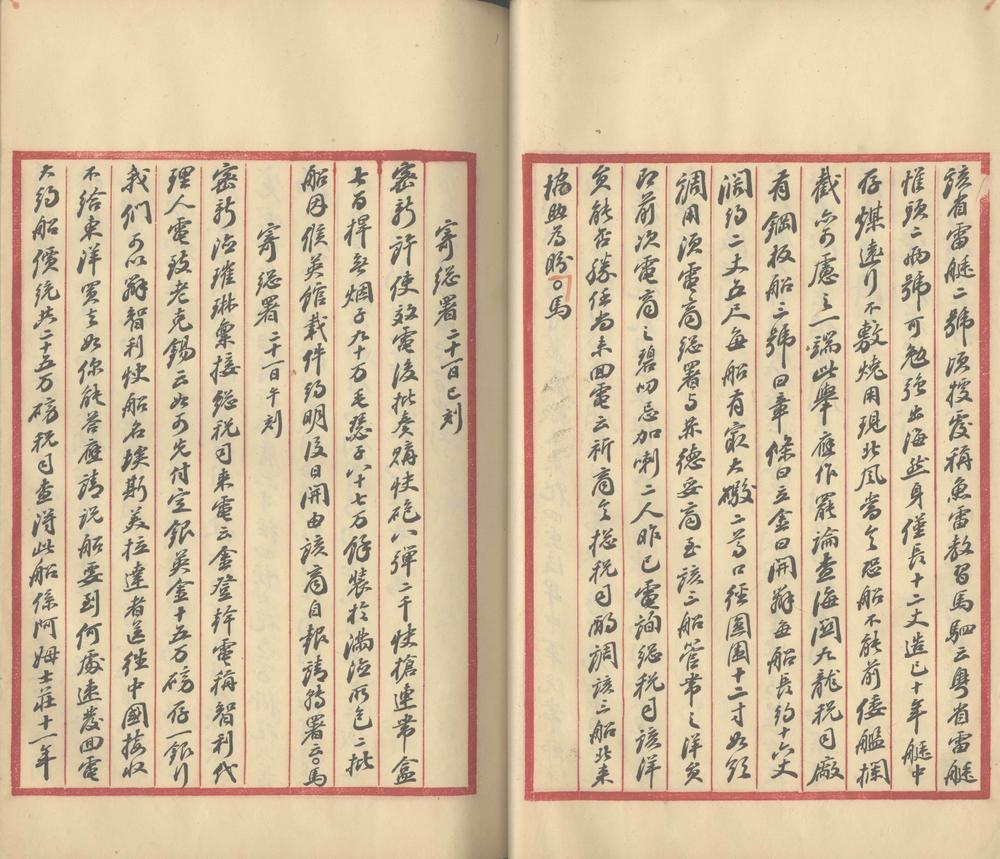 該省雷艇二號須授爱稱魚雷教習馬駟云粵省雷艇
惟頭二兩號可勉強出海然身僅長十二丈造已十年艇中
存煤速行不敷燒用現北風當令恐船不能前倭艦攔
截亦可慮之一端此舉應作罷論查海關九龍稅司廠
有鋼板船三號曰章條曰立金曰開辦每船長約十六丈
濶約二丈五尺每船有最大礮二尊口徑圓圍十二寸如欲
調用須電商總署与赫德妥商至該三船管帶之洋員
即前次電商之碧叨忌加喇二人昨已電詢總稅司該洋
員能否勝任尚未回電云祈商令總稅司酌調該三船北來
協助为盼○馬
寄總署 二十一日巳刻
密新許使敬電後批奏購快砲八彈二千快槍連帶盒
七百桿無烟子九十万毛瑟子八十七万餘裝於滿德所包二批
船因候英館載件約明後日開由該商自報請轉署云○馬
寄總署 二十一日午刻
密新德璀琳稟接總稅司来電云金登幹電稱智利代
理人電致老克錫云如可先付定銀英金十五万磅存一銀行
我們可以辭智利快船名埃斯美拉達者送往中國接收
不給東洋買去如你能答應請說船要到何處速覆回電
大約船價統共二十五万磅稅司查得此船係阿姆士莊十一年